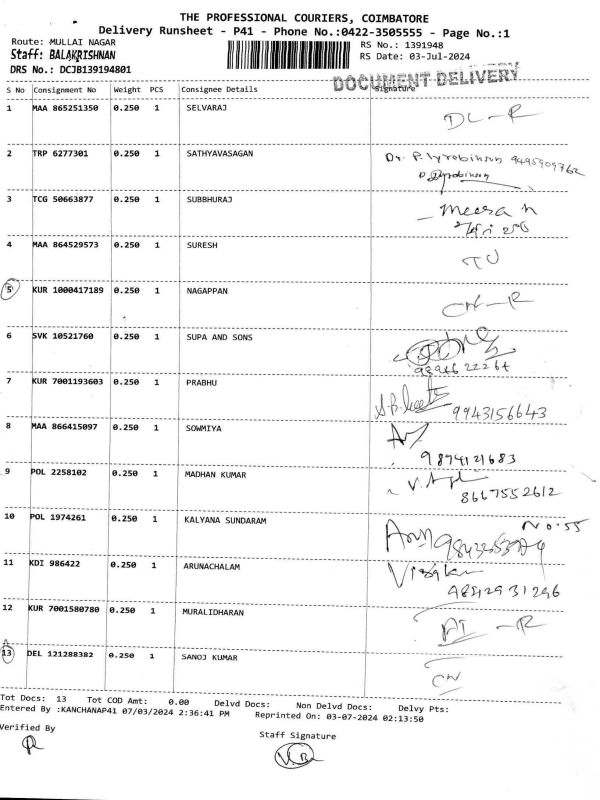 THE PROFESSIONAL COURIERS, COIMBATORE
Delivery Runsheet - P41 - Phone No.:0422-3505555 - Page No.:1
Route: MULLAI NAGAR
RS No.: 1391948
Staff: BALAKRISHNAN
RS Date: 03-Jul-2024
DRS No.: DCJB139194801
DOCUMENT DELIVERY
S No Consignment No Weight PCS Consignee Details Signature
1 MAA 865251350 0.250 1 SELVARAJ DL-R
2 TRP 6277301 0.250 1 SATHYAVASAGAN
3 TCG 50663877 0.250 1 SUBBHURAJ Meera n
4 MAA 864529573 0.250 1 SURESH TU
5 KUR 1000417189 0.250 1 NAGAPPAN CN-R
6 SVK 10521760 0.250 1 SUPA AND SONS
7 KUR 7001193603 0.250 1 PRABHU
9943156643
8 MAA 866415097 0.250 1 SOWMIYA
9874121683
9 POL 2258102 0.250 1 MADHAN KUMAR
8667552612
10 POL 1974261 0.250 1 KALYANA SUNDARAM No.55
11 KDI 986422 0.250 1 ARUNACHALAM
9842931296
12 KUR 7001580780 0.250 1 MURALIDHARAN AI -R
13 DEL 121288382 0.250 1 SANOJ KUMAR CN
Tot Docs: 13 Tot COD Amt: 0.00 Delvd Docs: Non Delvd Docs: Delvy Pts:
Entered By :KANCHANAP41 07/03/2024 2:36:41 PM Reprinted On: 03-07-2024 02:13:50
Verified By
Staff Signature